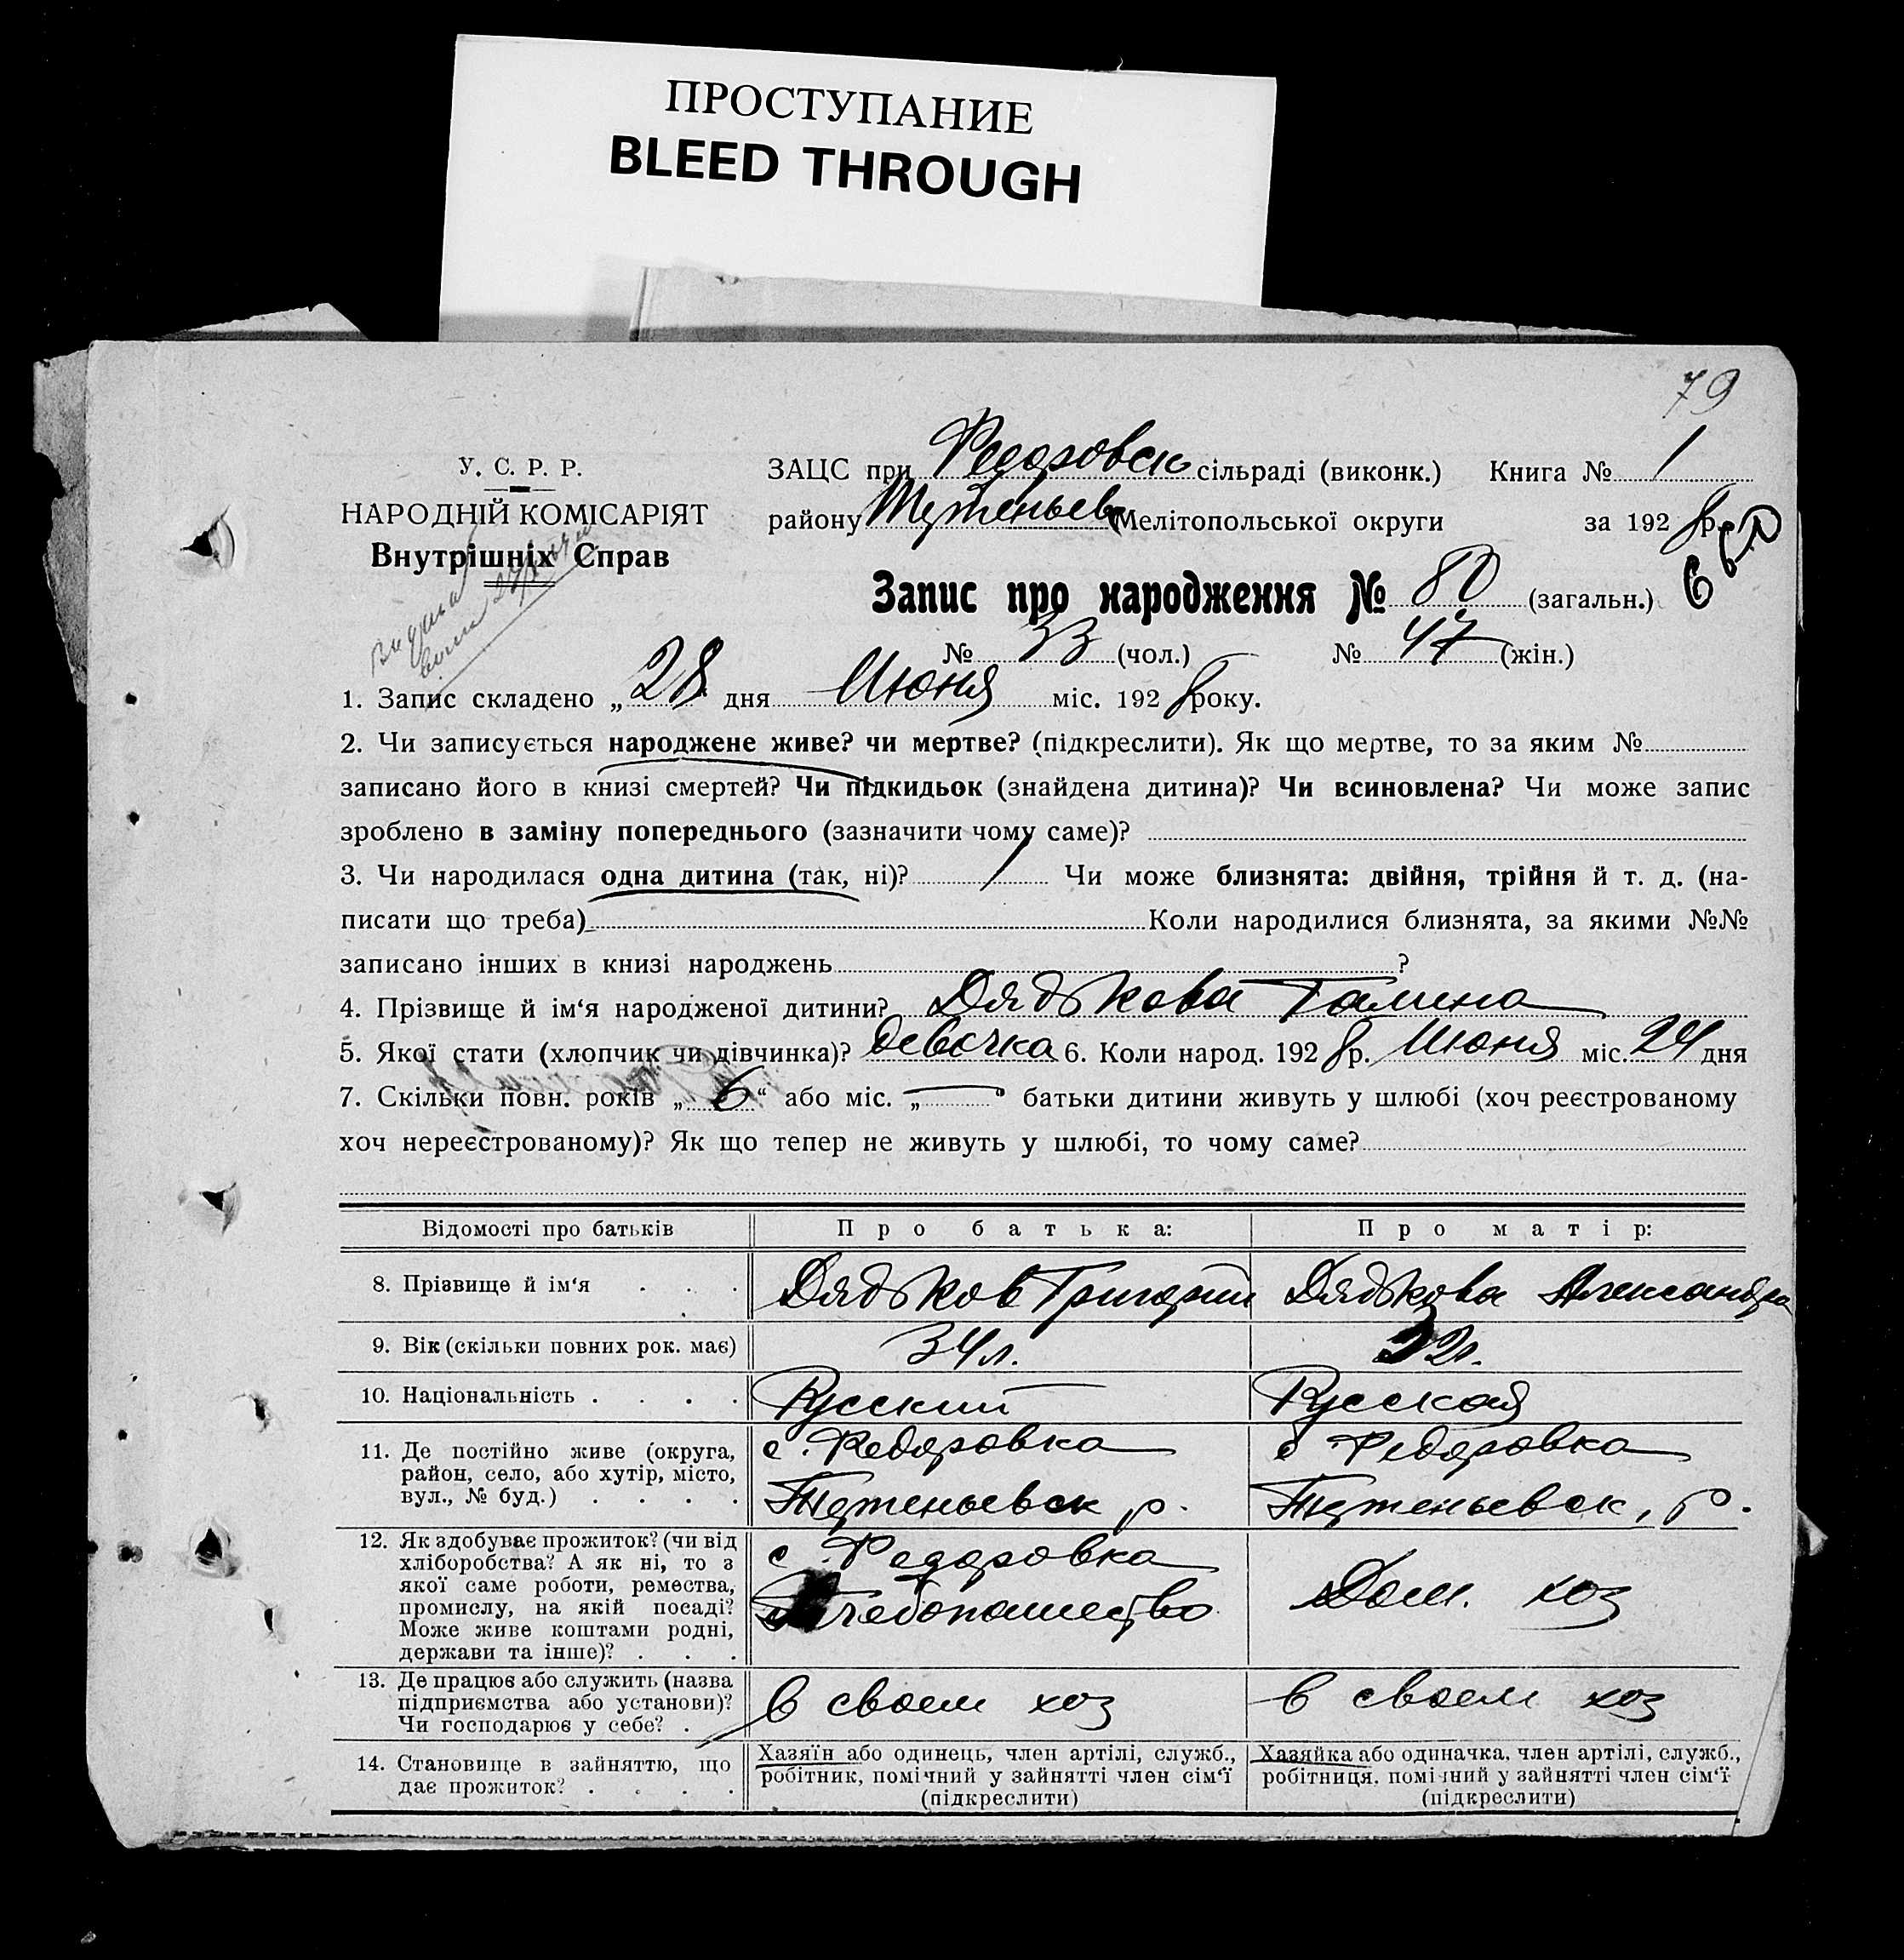 ПРОСТУПАНИЕ
BLEED THROUGH
79
У. С. Р. Р.
НАРОДНІЙ КОМІСАРІЯТ
Внутрішніх Справ
ЗАЦС при Федоровск сільраді (виконк.) Книга № 1
району Мелітопольської округи за 1928 р.
Запис про народження № 80 (загальн.)
№ 33 (чол.) № 47 (жін.)
1. Запис складено „ 28 дня Июня міс. 1928 року.
2. Чи записується народжене живе? чи мертве? (підкреслити). Як що мертве, то за яким №
записано його в книзі смертей? Чи підкидьок (знайдена дитина)? Чи всиновлена? Чи може запис
зроблено в заміну попереднього (зазначити чому саме)?
3. Чи народилася одна дитина (так, ні)? 1 Чи може близнята: двійня, трійня й т. д. (на-
писати що треба) Коли народилися близнята, за якими №№
записано інших в книзі народжень ?
4. Прізвище й ім‘я народженої дитини? Дядькова Галина
5. Якої стати (хлопчик чи дівчинка)? девочка 6. Коли народ. 1928 р. Июня міс. 24 дня
7. Скільки повн. років „ 6 “ або міс. „ — “ батьки дитини живуть у шлюбі (хоч реєстрованому
хоч нереєстрованому)? Як що тепер не живуть у шлюбі, то чому саме?
Відомості про батьків Про батька: Про матір:
8. Прізвище й ім‘я . . . Дядьков Григорий Дядькова Александра
9. Вік (скільки повних рок. має) 34 л. 32 г.
10. Національність . . . . Русский Русская
11. Де постійно живе (округа,
район, село, або хутір, місто,
вул., № буд.) . . . .
с. Федоровка
р.
с Федоровка
р.
12. Як здобуває прожиток? (чи від
хліборобства? А як ні, то з
якої саме роботи, ремества,
промислу, на якій посаді?
Може живе коштами родні,
держави та інше)? . . .
с. Федоровка
Хлебопашество
Дом. хоз
13. Де працює або служить (назва
підприємства або установи)?
Чи господарює у себе? .
в своем хоз
в своем хоз
14. Становище в зайняттю, що
дає прожиток? . . . .
Хазяїн або одинець, член артілі, служб.,
робітник, помічний у зайнятті член сім‘ї
(підкреслити)
Хазяйка або одиначка, член артілі, служб.,
робітниця, помічний у зайнятті член сім‘ї
(підкреслити)